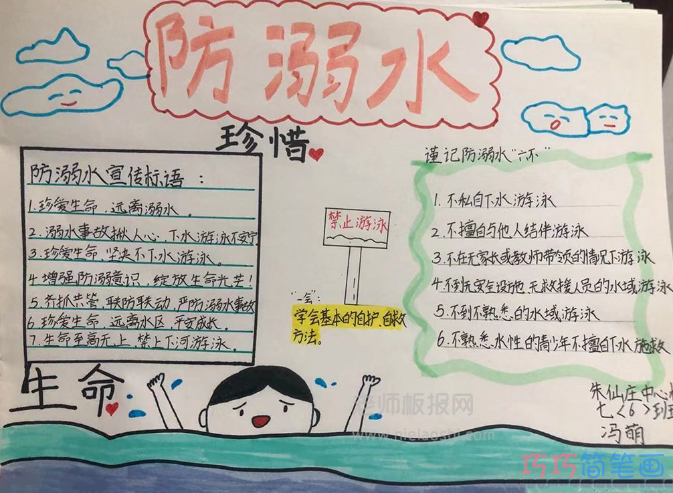 防溺水
珍惜
防溺水宣传标语：
1.珍爱生命，远离溺水。
2.溺水事故揪人心，下水游泳不安宁
3.珍爱生命，坚决不下水游泳。
4.增强防溺意识，绽放生命光芒！
5.齐抓共管，联防联动，严防溺水事故
6.珍爱生命，远离水区，平安成长。
7.生命至高无上，禁止下河游泳。
生命
禁止游泳
"一会"：
学会基本的自护、自救
方法。
谨记防溺水"六不"
1.不私自下水游泳
2.不擅自与他人结伴游泳
3.不在无家长或教师带领的情况下游泳
4.不到无安全设施、无救援人员的水域游泳
5.不到不熟悉的水域游泳
6.不熟悉水性的青少年不擅自下水施救
朱仙庄中心校
七<6>班
冯萌
老师板报网
巧巧简笔画